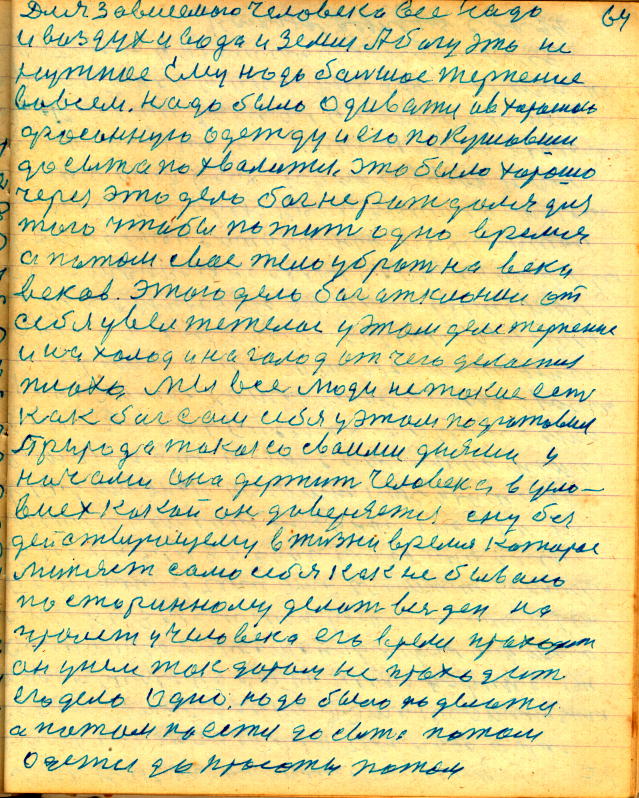 Для зависемого человека все надо 64
и воздух и вода и земля А богу это не
нужное Ему надо большое терпение
вовсем. надо было одивати ив хорошою
фасонную одежду и его покушавши
досыта похвалити. это было хорошо
через это дело бог не рождался для
того чтобы пожит одно время
а потом свое тело убрат на веки
веков. этого дела бог отклонил от
себя увел тежелое у этом деле терпение
и на холод и на голод от чего делается
плохо мы все люди не такие ест
как бог сам себя у этом подготовил
Природа такая со своими днями у
ночами она держит человека в усло-
виех какой он доверяется ему без
действующему в жизни время которое
меняет само себя как не бывало
по старинному делат вся ден на
пролет у человека его время проходит
он у нем так даром не проходит
его дело одно. надо было поделати
а потом поести до сыта потом
одется до красоти потом